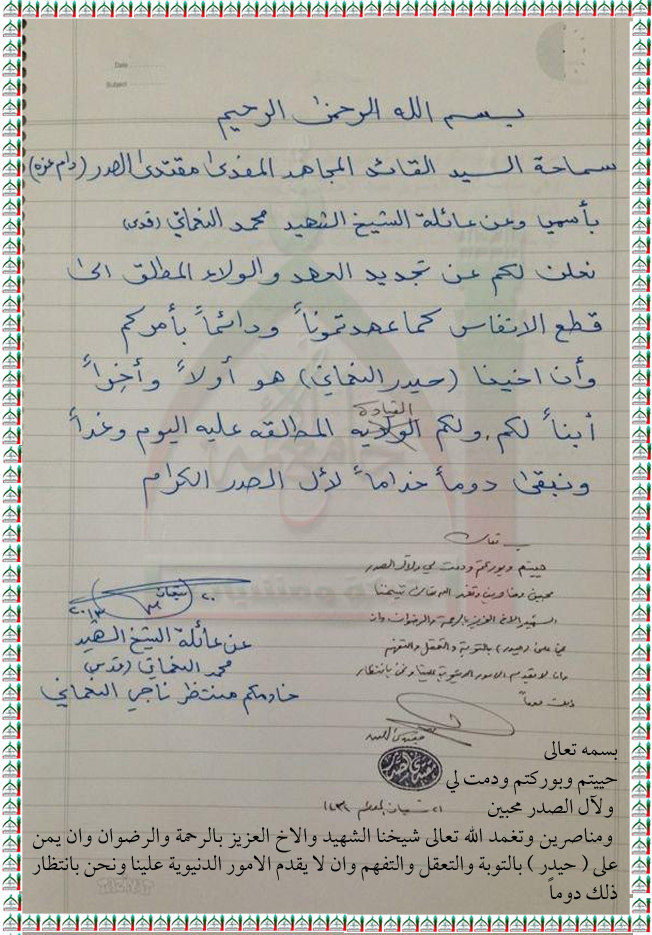 Date
Subject
بسم الله الرحمن الرحيم
سماحة السيد القائد المجاهد المفدى مقتدى الصدر (دام عزه)
بأسمي وعن عائلة الشيخ الشهيد محمد النعماني (قدس)
نعلن لكم عن تجديد العهد والولاء المطلق الى
قطع الانفاس كما عهدتمونا ودائماً بأمركم
وأن اخينا (حيدر النعماني) هو أولاً وأخراً
القيادة
أبناً لكم ولكم الولايه المطلقه عليه اليوم وغداً
ونبقى دوماً خداماً لأل الصدر الكرام
حييتم وبوركتم ودمت لي ولآل الصدر
محبين ومناصرين وتغمد الله تعالى شيخنا
الشهيد والاخ العزيز بالرحمة والرضوان وان
يمن على (حيدر) بالتوبة والتعقل والتفهم
وان لا يقدم الامور الدنيوية علينا ونحن بانتظار
ذلك دوماً
مقتدى الصدر
مقتدى الصدر
٢٠ شعبان
٢٠١٣
عن عائلة الشيخ الشهيد
محمد النعماني (قدس)
خادمكم منتظر ناجي النعماني
بسمه تعالى
حييتم وبوركتم ودمت لي
ولآل الصدر محبين
ومناصرين وتغمد الله تعالى شيخنا الشهيد والاخ العزيز بالرحمة والرضوان وان يمن
على ( حيدر ) بالتوبة والتعقل والتفهم وان لا يقدم الامور الدنيوية علينا ونحن بانتظار
ذلك دوماً